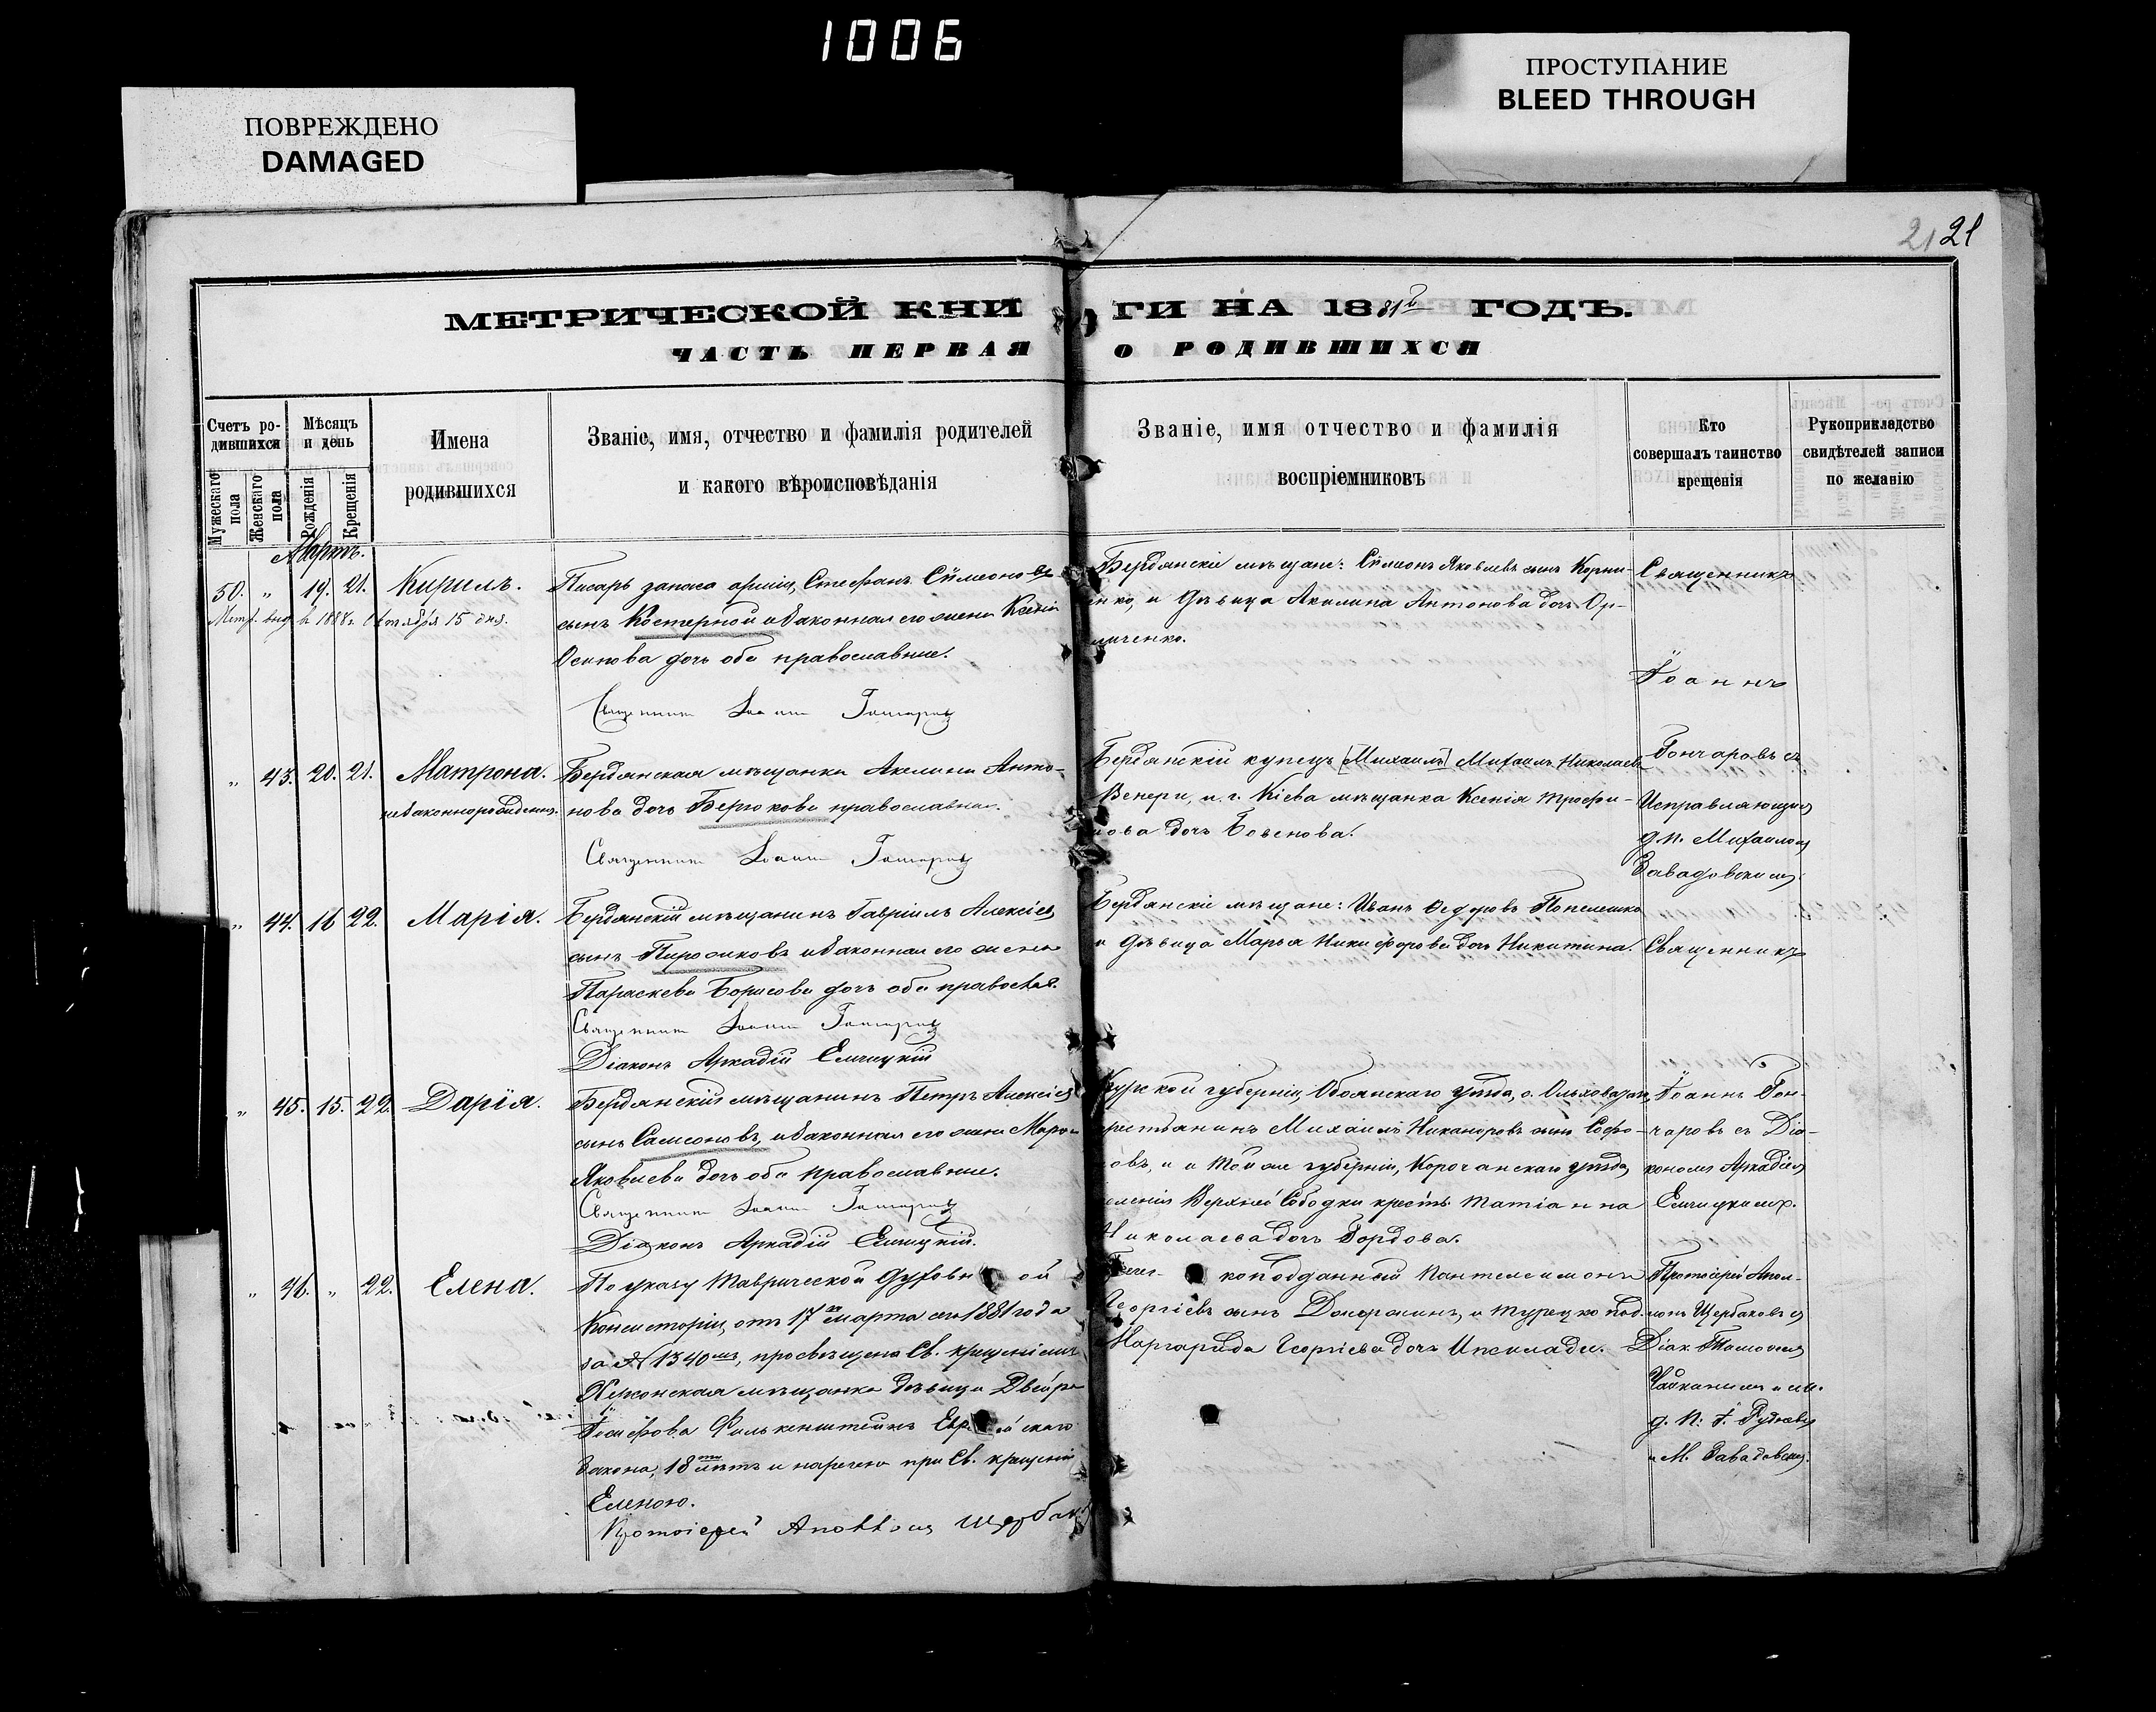 1006
ПОВРЕЖДЕНО
DAMAGED
ПРОСТУПАНИЕ
BLEED THROUGH
21 21
МЕТРИЧЕСКОЙ КНИ ГИ НА 1881 ГОДЪ.
ЧАСТЬ ПЕРВАЯ О РОДИВШИХСЯ
Счетъ ро-
дившихся
Мужескаго пола
Женскаго пола
Мѣсяцъ
и день
Рожденія
Крещенія
Имена
родившихся
Званіе, имя, отчество и фамилія родителей
и какого вѣроисповѣданія
Званіе, имя отчество и фамилія
воспріемниковъ
Кто
совершалъ таинство
крещенія
Рукоприкладство
свидѣтелей записи
по желанію
Мартъ.
50. " 19. 21. Кирилъ.
Метр. выд. 1888г. Октября 15 дня.
Писарь запаса арміи, Стефанъ Сѵмеоновъ
сынъ Костерной и законная его жена Ксенія
Осипова дочь оба православные.
Священникъ Іоаннъ Гончаровъ
Бердянскіе мѣщане: Сѵмеонъ Яковлевъ сынъ Корни-
енко, и дѣвица Акилина Антонова дочь Ор-
личенко.
Священникъ
Іоаннъ
" 43. 20. 21. Матрона.
незаконнорожденная.
Бердянская мѣщанка Акилина Анто-
нова дочь Берюкова православная.
Священникъ Іоаннъ Гончаровъ
Бердянскій купецъ [Михаилъ] Михаилъ Николаевъ
Венери, и г. Кіева мѣщанка Ксенія Трофи-
мова дочь
Гончаровъ съ
Исправляющимъ
д.п. Михаиломъ
Завадовскимъ.
" 44. 16 22. Марія.
Бердянскій мѣщанинъ Гавріилъ Алексіевъ
сынъ Пирожковъ и законная его жена
Параскева Борисова дочь оба православ.
Священникъ Іоаннъ Гончаровъ
Діаконъ Аркадій Елчицкій
Бердянскіе мѣщане: Иванъ Ѳедоровъ Попелешко
и дѣвица Марья Никифорова дочь Никитина.
Священникъ
" 45. 15. 22. Дарія.
Бердянскій мѣщанинъ Петръ Алексіевъ
сынъ Самсоновъ, и законная его жена Марѳа
Яковлева дочь оба православные.
Священникъ Іоаннъ Гончаровъ
Діаконъ Аркадій Елчицкій.
Курской губерніи, Обоянскаго уѣзда, с.
крестьянинъ Михаилъ Никаноровъ сынъ Софо-
новъ, и той же губерніи, Корочанскаго уѣзда,
Верхней Слободки крестьян. Татіанна
Николаева дочь Гордова.
Іоаннъ Гон-
чаровъ съ Діа-
кономъ Аркадіемъ
Елчицкимъ.
" 46. " 22. Елена.
По указу Таврической Духовн ой
Консисторіи, отъ 17го марта сего 1881 года
за № 1340мъ, просвѣщена Св. крещеніемъ
Херсонская мѣщанка дѣвица Двейра
Іосифова Филькенштейнъ Евр ейскаго
закона, 18ти лѣтъ и наречена при Св. крещеніи
Еленою.
Протоіерей Аполлонъ Щербаковъ
Гречес коподданный Пантелеимонъ
Георгіевъ сынъ и Турецко под.
Маргарида Георгіева дочь Ипсилади.
Протоіерей Апол-
лонъ Щербаковъ съ
Діак. Тимоѳеемъ
Чайкинымъ и
д. п. І. Рудневымъ
и М. Завадовским.